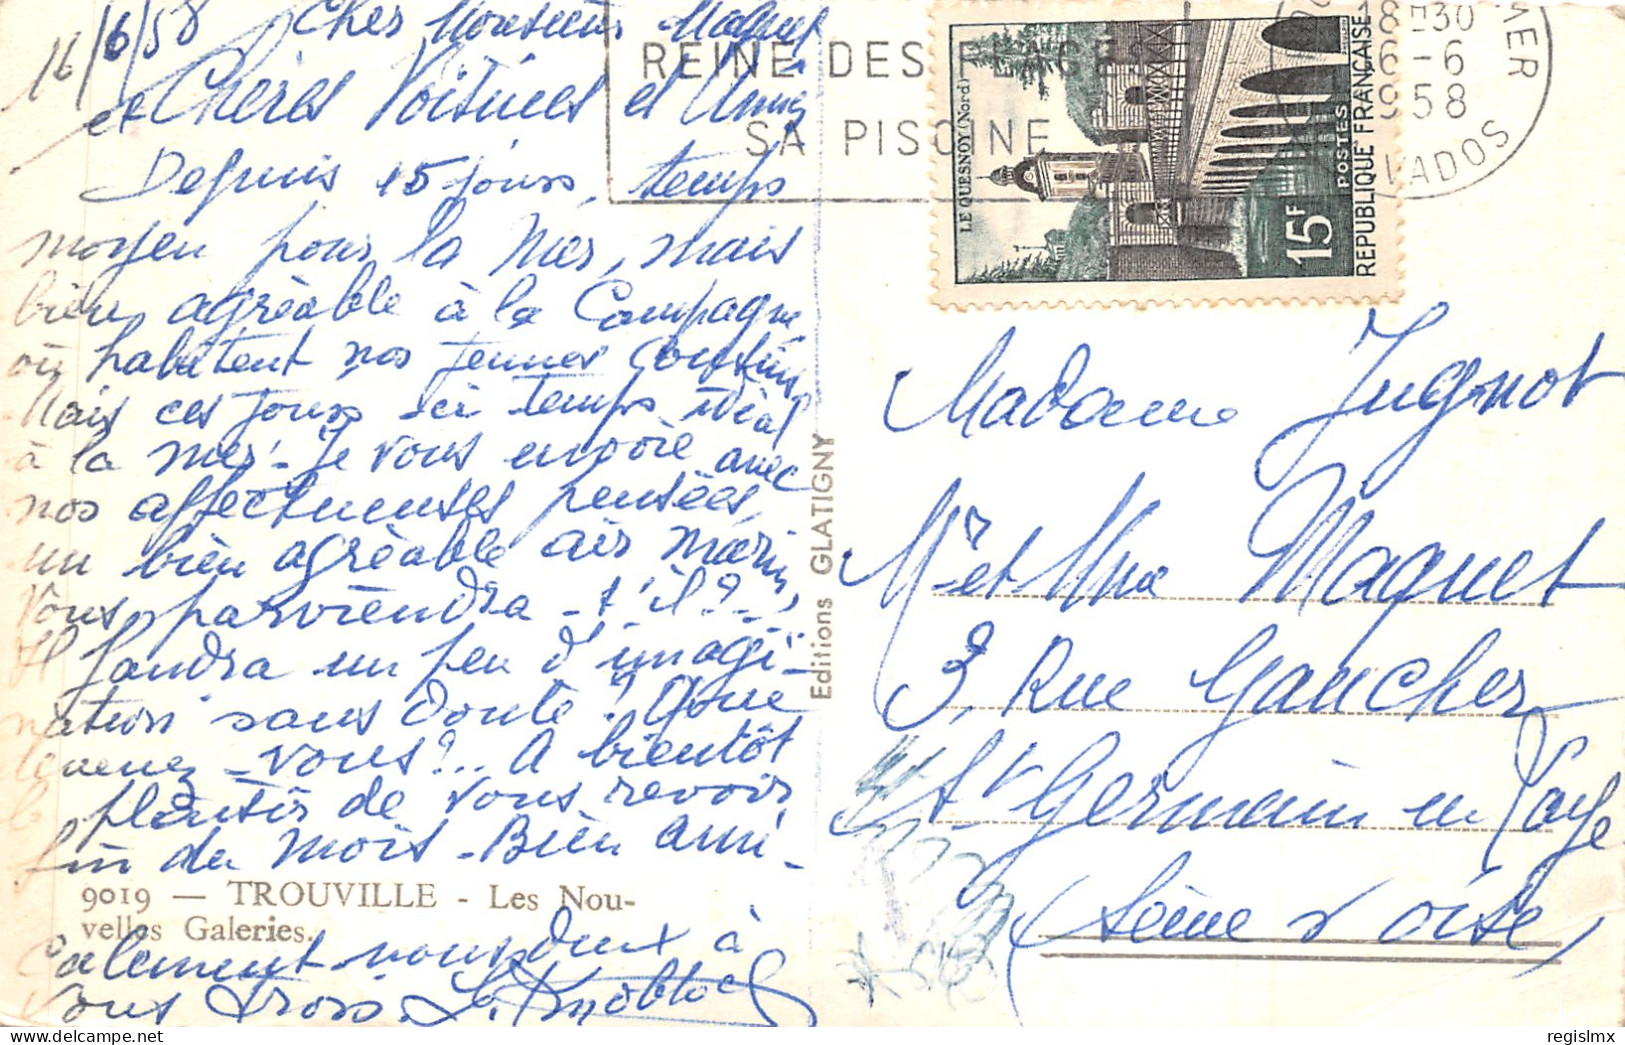 16/6/58 Cher Monsieur Maquet
et Chères Voisines et Amies
Depuis 15 jours, temps
moyen pour la mer, mais
bien agréable à la Campagne,
où habitent nos jeunes Cousins.
Mais ces jours ici temps idéal
à la mer. Je vous envoie avec
nos affectueuses pensées,
un bien agréable air marin,
Vous parviendra-t'il?-
Il faudra un peu d'imagi-
nation sans doute! Que
devenez-vous?... A bientôt
plaisir de vous revoir
fin du mois. Bien ami-
9019 — TROUVILLE - Les Nou-
velles Galeries.
calement nous deux à
vous trois.
Editions GLATIGNY
REINE DES PLAGES
SA PISCINE
18H30
16-6
1958
MER
CALVADOS
LE QUESNOY (Nord)
15F
POSTES
REPUBLIQUE FRANÇAISE
Madame Jugnot
Mr et Mme Maquet
3, Rue Gaucher
St Germain en Laye
(Seine & Oise)
regislmx